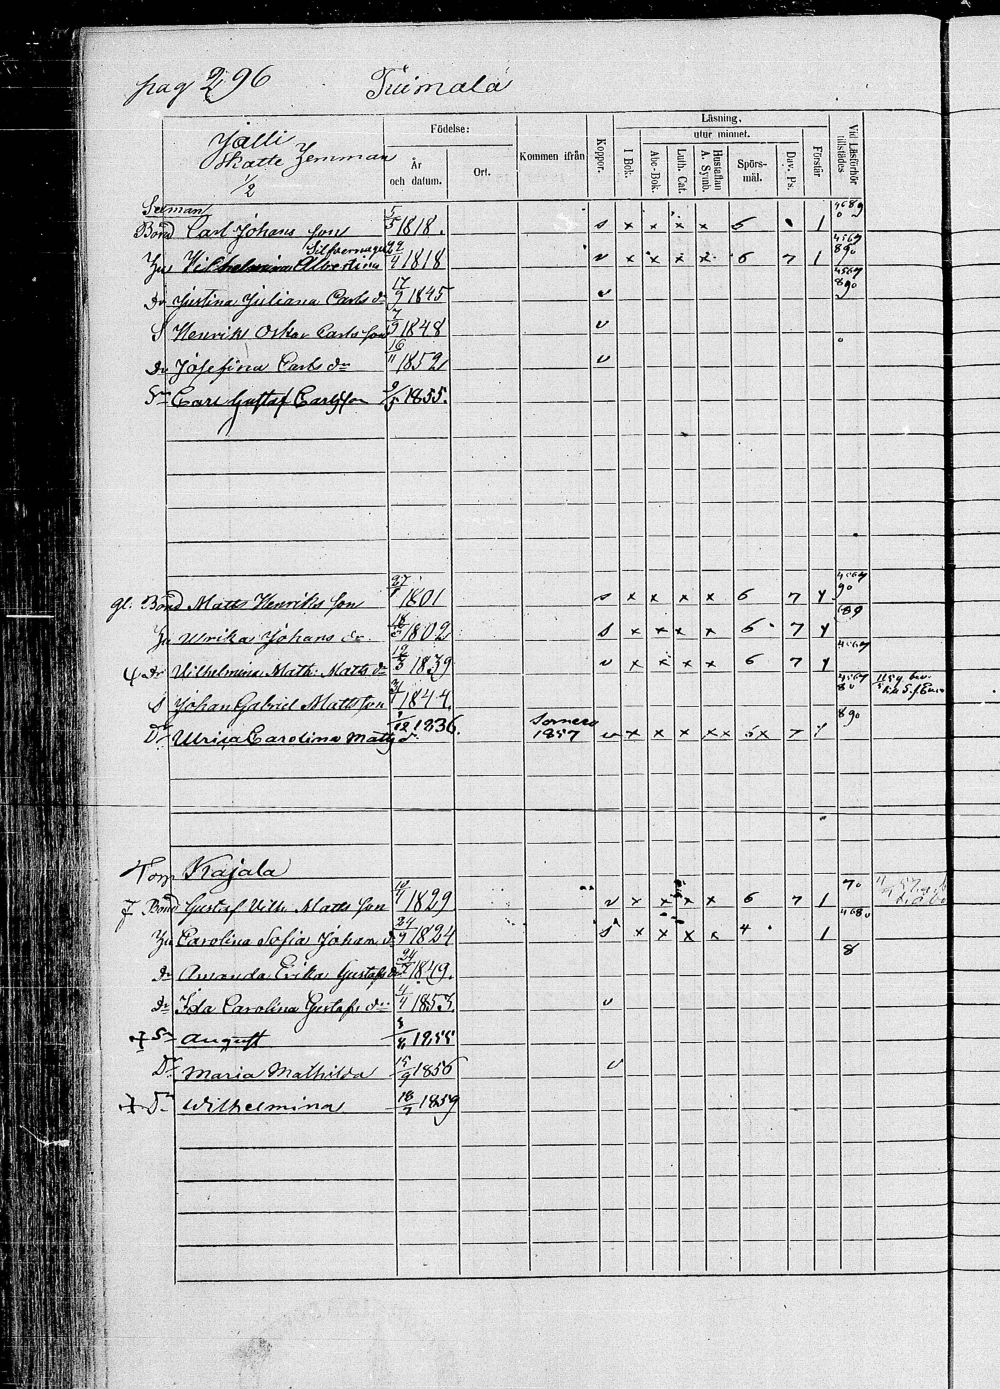 pag 296 Tuimala
Jalli
Skatte Hemman
1/2
Födelse:
År och datum.
Ort.
Kommen ifrån
Koppor.
Läsning,
utur minnet.
I Bok.
Abc-Bok.
Luth. Cat.
Hustaflan A. Symb.
Spörs-mål.
Dav. Ps.
Förstår
Vid Läsförhör tillstädes
Bond Carl Johans son 5/5 1818. s x x x x 5 1
Hu Vilhelmina Albertina 4 1818 v x x x x 6 7 1
Dr Justina Juliana Carls dr 17/9 1845 v
S Henrik Oskar Carls son 7/9 1848 v
dr Josefina Carls dr 16/11 1852 v
Sn Carl Gustaf Carlsson 1855.
gl. Bond Matts Henriks son 27/1 1801 s x x x x 6 7 y
Hu Ulrika Johans dr 1802 s x x x x 6 7 y
Dr Vilhelmina Math. Matts dr 12/3 1839 v x x x x 6 7 y
S Johan Gabriel Matts son 31/1 1844.
Dr Ulrica Carolina Matts d. 1/12 1836. Somero 1857 v x x x xx 5x 7 y
Torp Kajala
f Bond Gustaf Vilh. Matts son 1829 v x x x x 6 7 1
Hu Carolina Sofia Johans d 24/9 1824 s x x x x 4 1
dr Amanda Erika Gustafs dr 1849. 8
Dr Ida Carolina Gustafs dr 4/4 1853. v
+ Sn August 1855
Dr Maria Mathilda 15/9 1856 v
+ Dr Wilhelmina 18/7 1859